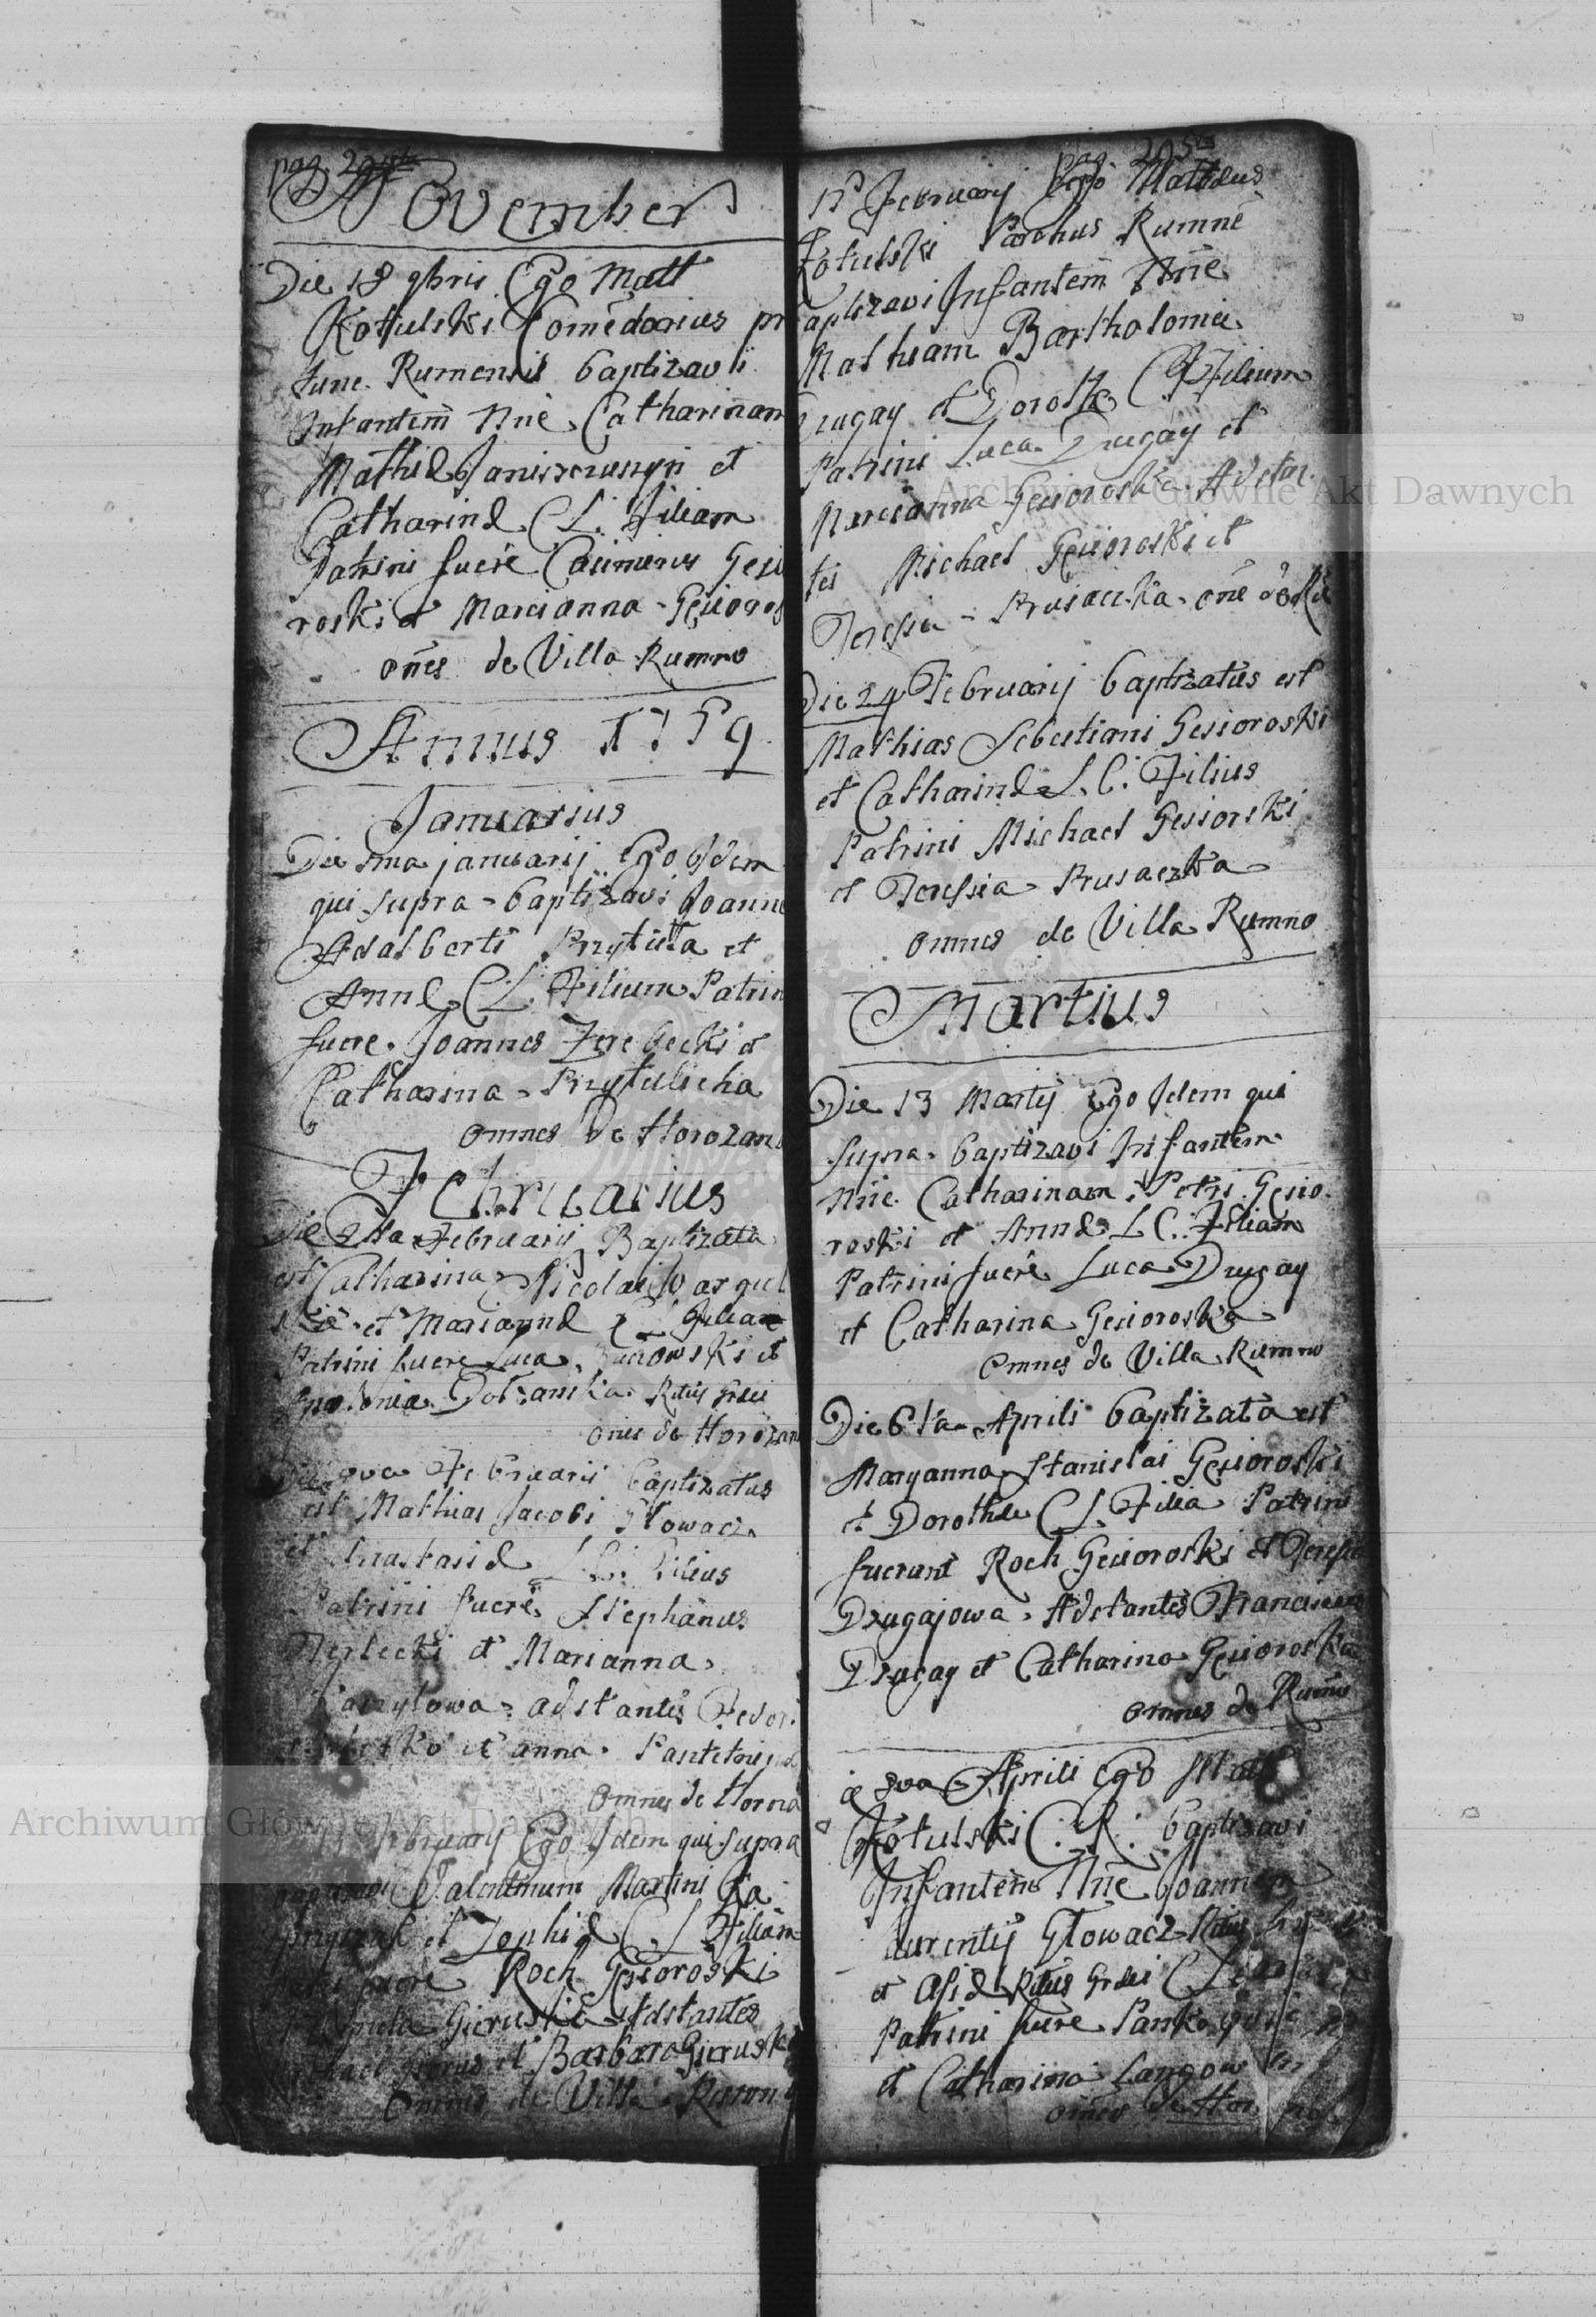 pag. 294ta
November
Die 18 9bris Ego Matt
Kotulski Comēdarius pr
tunc Rumensis baptizavi
Infantem Nñe Catharinam
Mathiæ et
Catharinæ C L. Filiam
Patrini fuere Casimirus Gesio
roski et Marcianna Gesioros
oñes de Villa Rumno
Annus 1759
Januarius
Die 1ma januarij Ego Idem
qui supra baptizavi Joanne
Adalberti Przytuła et
Annæ C L. Filium Patrin
fuere Joannes Zerebecki et
Catharina Przytulicha
omnes de Horozan
Februarius
Die 2da Februarii Baptizata
est Catharina Nicolai
et Mariannæ C L Filia
Patrini fuere Luca et
Dobzanska Ritus Græci
omes de Horozan
Die 9va Februarii baptizatus
est Mathias Jacobi Głowacz
et Anastasiæ L C. Filius
Patrini fuere Stephanus
Terlecki et Marianna
adstantes Fedor
et anna
omnes de Horoza
Februarij Ego Idem qui supra
Valentinum Martini
et Zophiæ C L Filium
fuere Roch Gesioroski
Gieruska Adstantes
Gierus et Barbara Gierusk
Omnes de Villa Rumn
pag. 295ta
17 Februarij Ego Mattheus
Kotulski Parohus Rumnē
baptizavi Infantem Nñe
Mathiam Bartholomei
Drugay et Doroth C L Filium
Patrini Luca Drugay et
Marcianna Gesioroska Adstan
tes Michael Gesioroski et
Teressia Prusaczka oñe de Ru
Die 24 Februarij baptizatus est
Mathias Sebestiani Gesioroski
et Catharinæ L. C. Filius
Patrini Michael Gesiorski
et Teressia Prusaczka
omnes de Villa Rumno
Martius
Die 13 Martij Ego Idem qui
supra baptizavi Infantem
Nñe Catharinam Petri Gesio
roski et Annæ L C. Filiam
Patrini fuere Luca Drugay
et Catharina Gesioroska
Omnes de Villa Rumno
Die 6ta Aprili baptizata est
Maryanna Stanislai Gesioroski
et Dorotheæ C L. Filia Patrini
fuerunt Roch Gesioroski et Teressia
Drugajowa Adstantes Franciscus
Drugay et Catharina Gesioroska
omnes de Rumno
8va Aprili Ego Matt
Kotulski C. R. baptizavi
Infantem Nñe Joannem
Laurentij Głowacz Ritus
et Ritus Græci C L
Patrini fuere Panko
et Catharina
omes de Horo
Archiwum Główne Akt Dawnych
Archiwum Główne Akt Dawnych